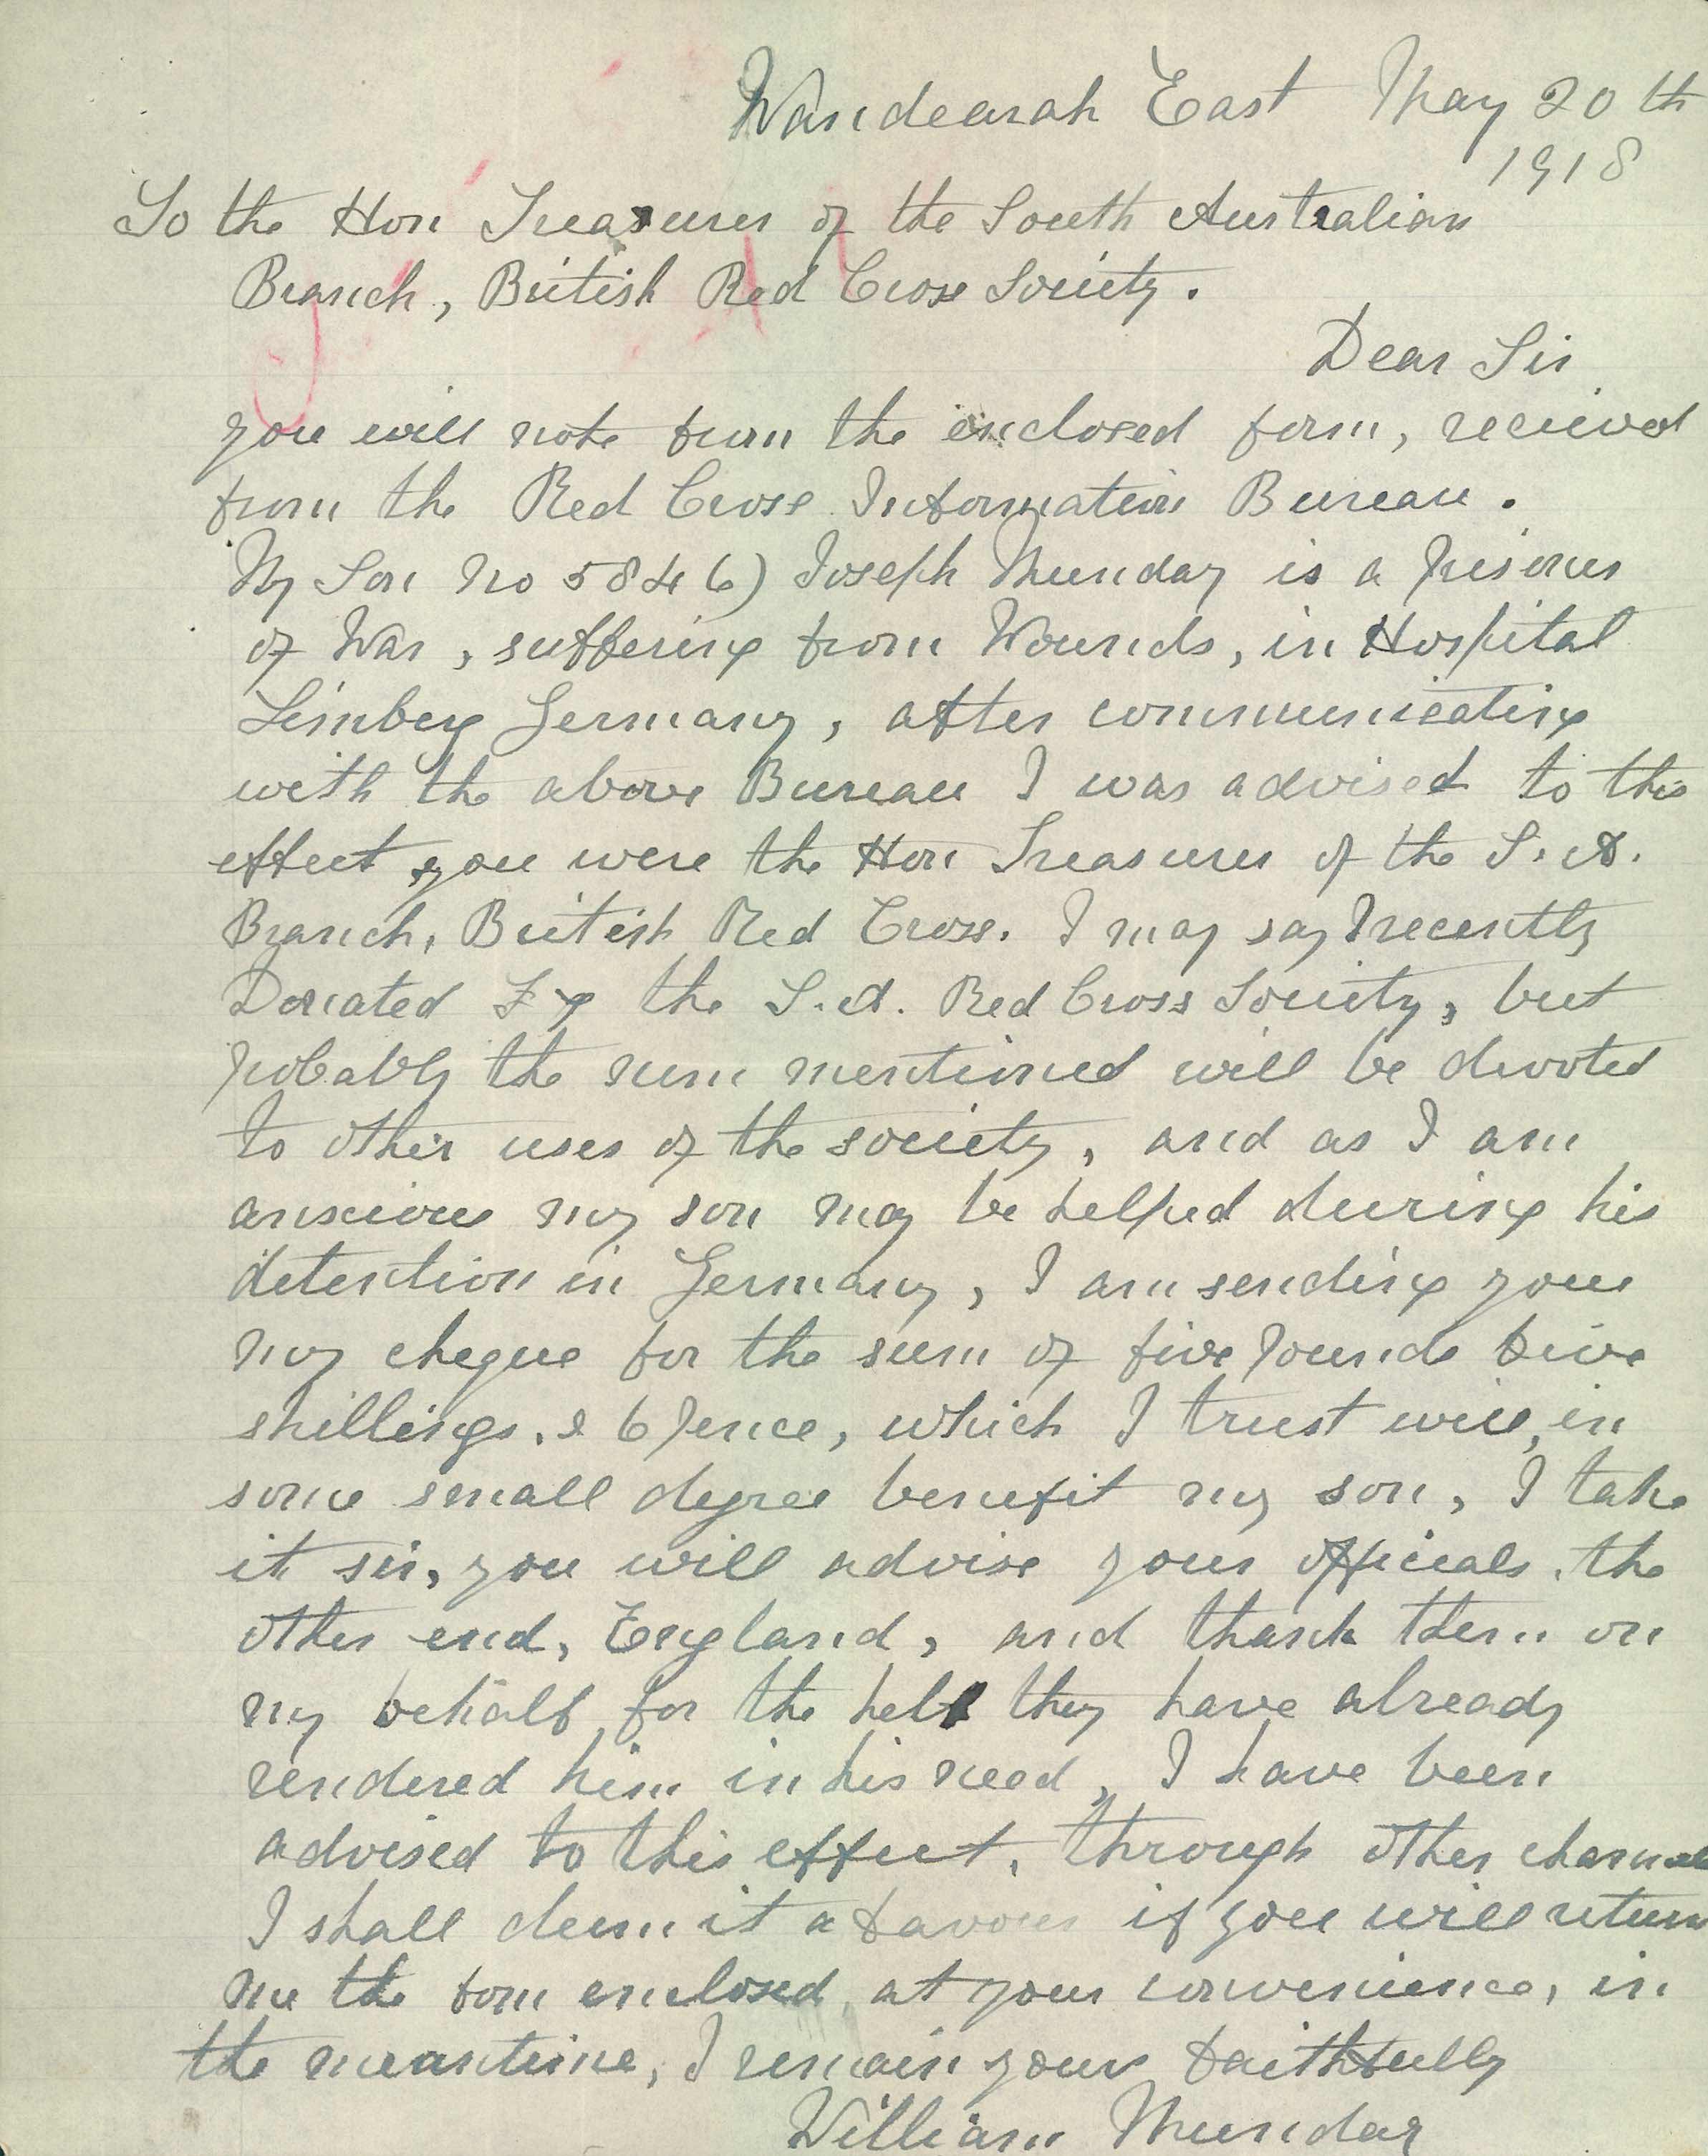 Wandearah East May 20th
1918
To the Hon Treasurer of the South Australian
Branch, British Red Cross Society.
Dear Sir
you will note from the enclosed form, recieved
from the Red Cross Information Bureau.
My Son No 5846) Joseph Munday is a prisoner
of War, suffering from Wounds, in Hospital
Limberg Germany, after communicating
with the above Bureau I was advised to this
effect you were the Hon Treasurer of the S.A.
Branch, British Red Cross. I may say I recently
Donated the S.A. Red Cross Society, but
probably the sum mentioned will be devoted
to other uses of the society, and as I am
anxious my son may be helped during his
detention in Germany, I am sending your
my cheque for the sum of five pounds five
shillings. & 6 pence, which I trust will, in
some small degree benefit my son, I take
it sir, you will advise your officials. the
other end, England, and thank them on
my behalf, for the help they have already
rendered him in his need, I have been
advised to this effect, through other channel
I shall deem it a favour if you will return
me the form enclosed, at your convenience, in
the meantime, I remain your faithfully
William Munday